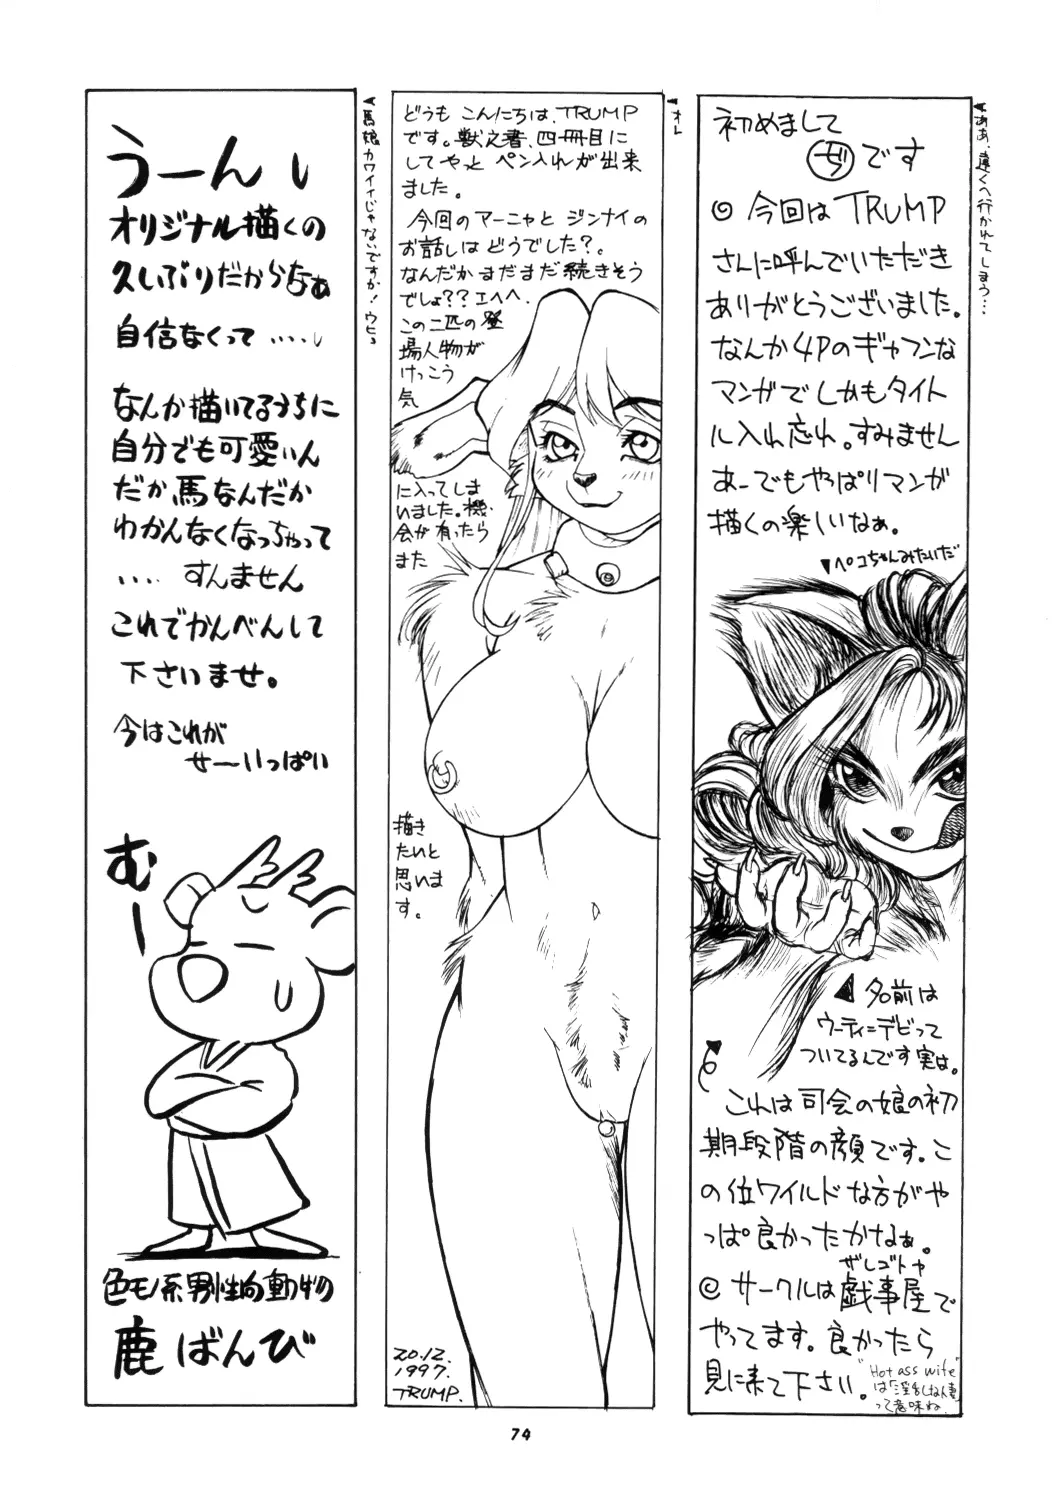 初めまして
ぢです
◎今回はTRUMP
さんに呼んでいただき
ありがとうございました。
なんか4Pのギャフンな
マンガでしかもタイト
ル入れ忘れ。すみません
あーでもやっぱりマンガ
描くの楽しいなぁ。
▼ペコちゃんみたいだ
◀名前は
ウーティ=デビって
ついてるんです実は。
これは司会の娘の初
期段階の顔です。こ
の位ワイルドな方がや
っぱ良かったかなぁ。
ザレゴトヤ
◎サークルは戯事屋で
やってます。良かったら
見に来て下さい。
"Hot ass wife"
は「淫乱な人妻」
って意味ね
◀ああ、遠くへ行かれてしまう…
どうも こんにちは、TRUMP
です。獣之書、四冊目に
してやっと ペン入れが出来
ました。
今回のアーニャと ジンナイの
お話しは どうでした?。
なんだか まだまだ続きそう
でしょ??エヘヘ。
この二匹の登
場人物が
けっこう
気
に入ってしま
いました。機
会が有ったら
また
描き
たいと
思いま
す。
20.12.
1997.
TRUMP.
◀オレ
うーんし
オリジナル描くの
久しぶりだからなぁ
自信なくって……し
なんか描いてるうちに
自分でも可愛いん
だか馬なんだか
わかんなくなっちゃって
…. すんません
これでかんべんして
下さいませ。
今はこれが
せーいっぱい
むー
色モノ系男性向動物
鹿ばんび
◀馬娘カワイィじゃないですか!ウヒョ
74